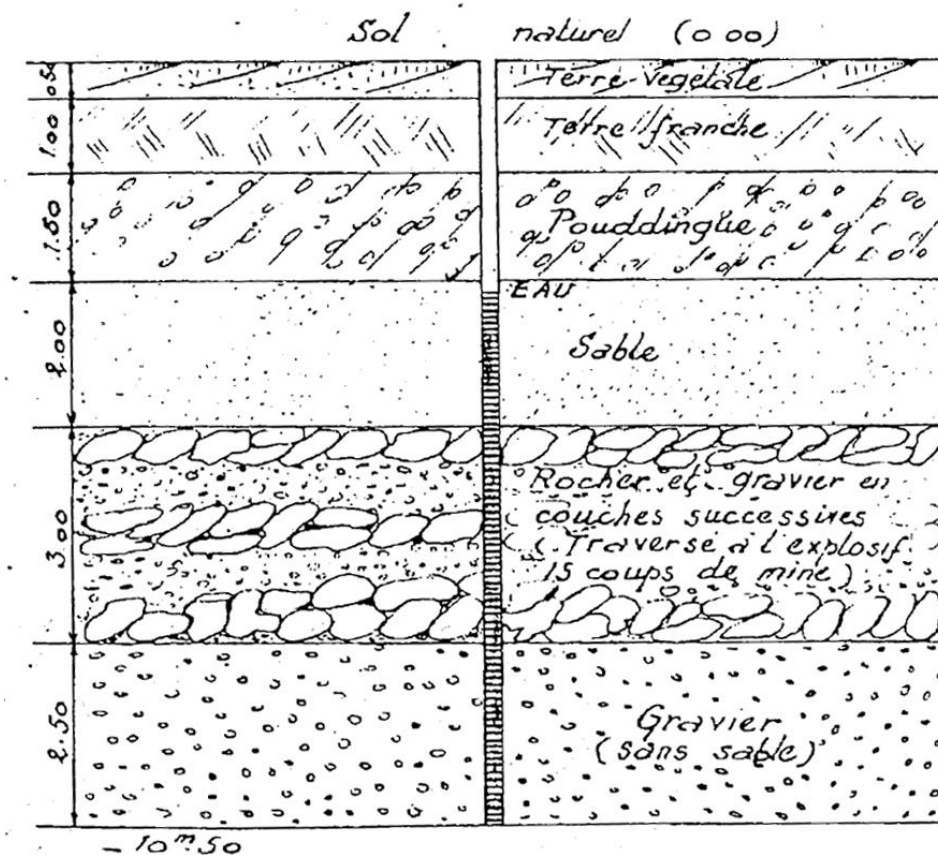 Sol naturel (0 00)
0.50
Terre vegetale
1.00
Terre franche
1.50
Pouddingue
EAU
2.00
Sable
3.00
Rocher et gravier en
couches successives
(Traverse à l'explosif
15 coups de mine)
2.50
Gravier
(sans sable)
- 10m.50